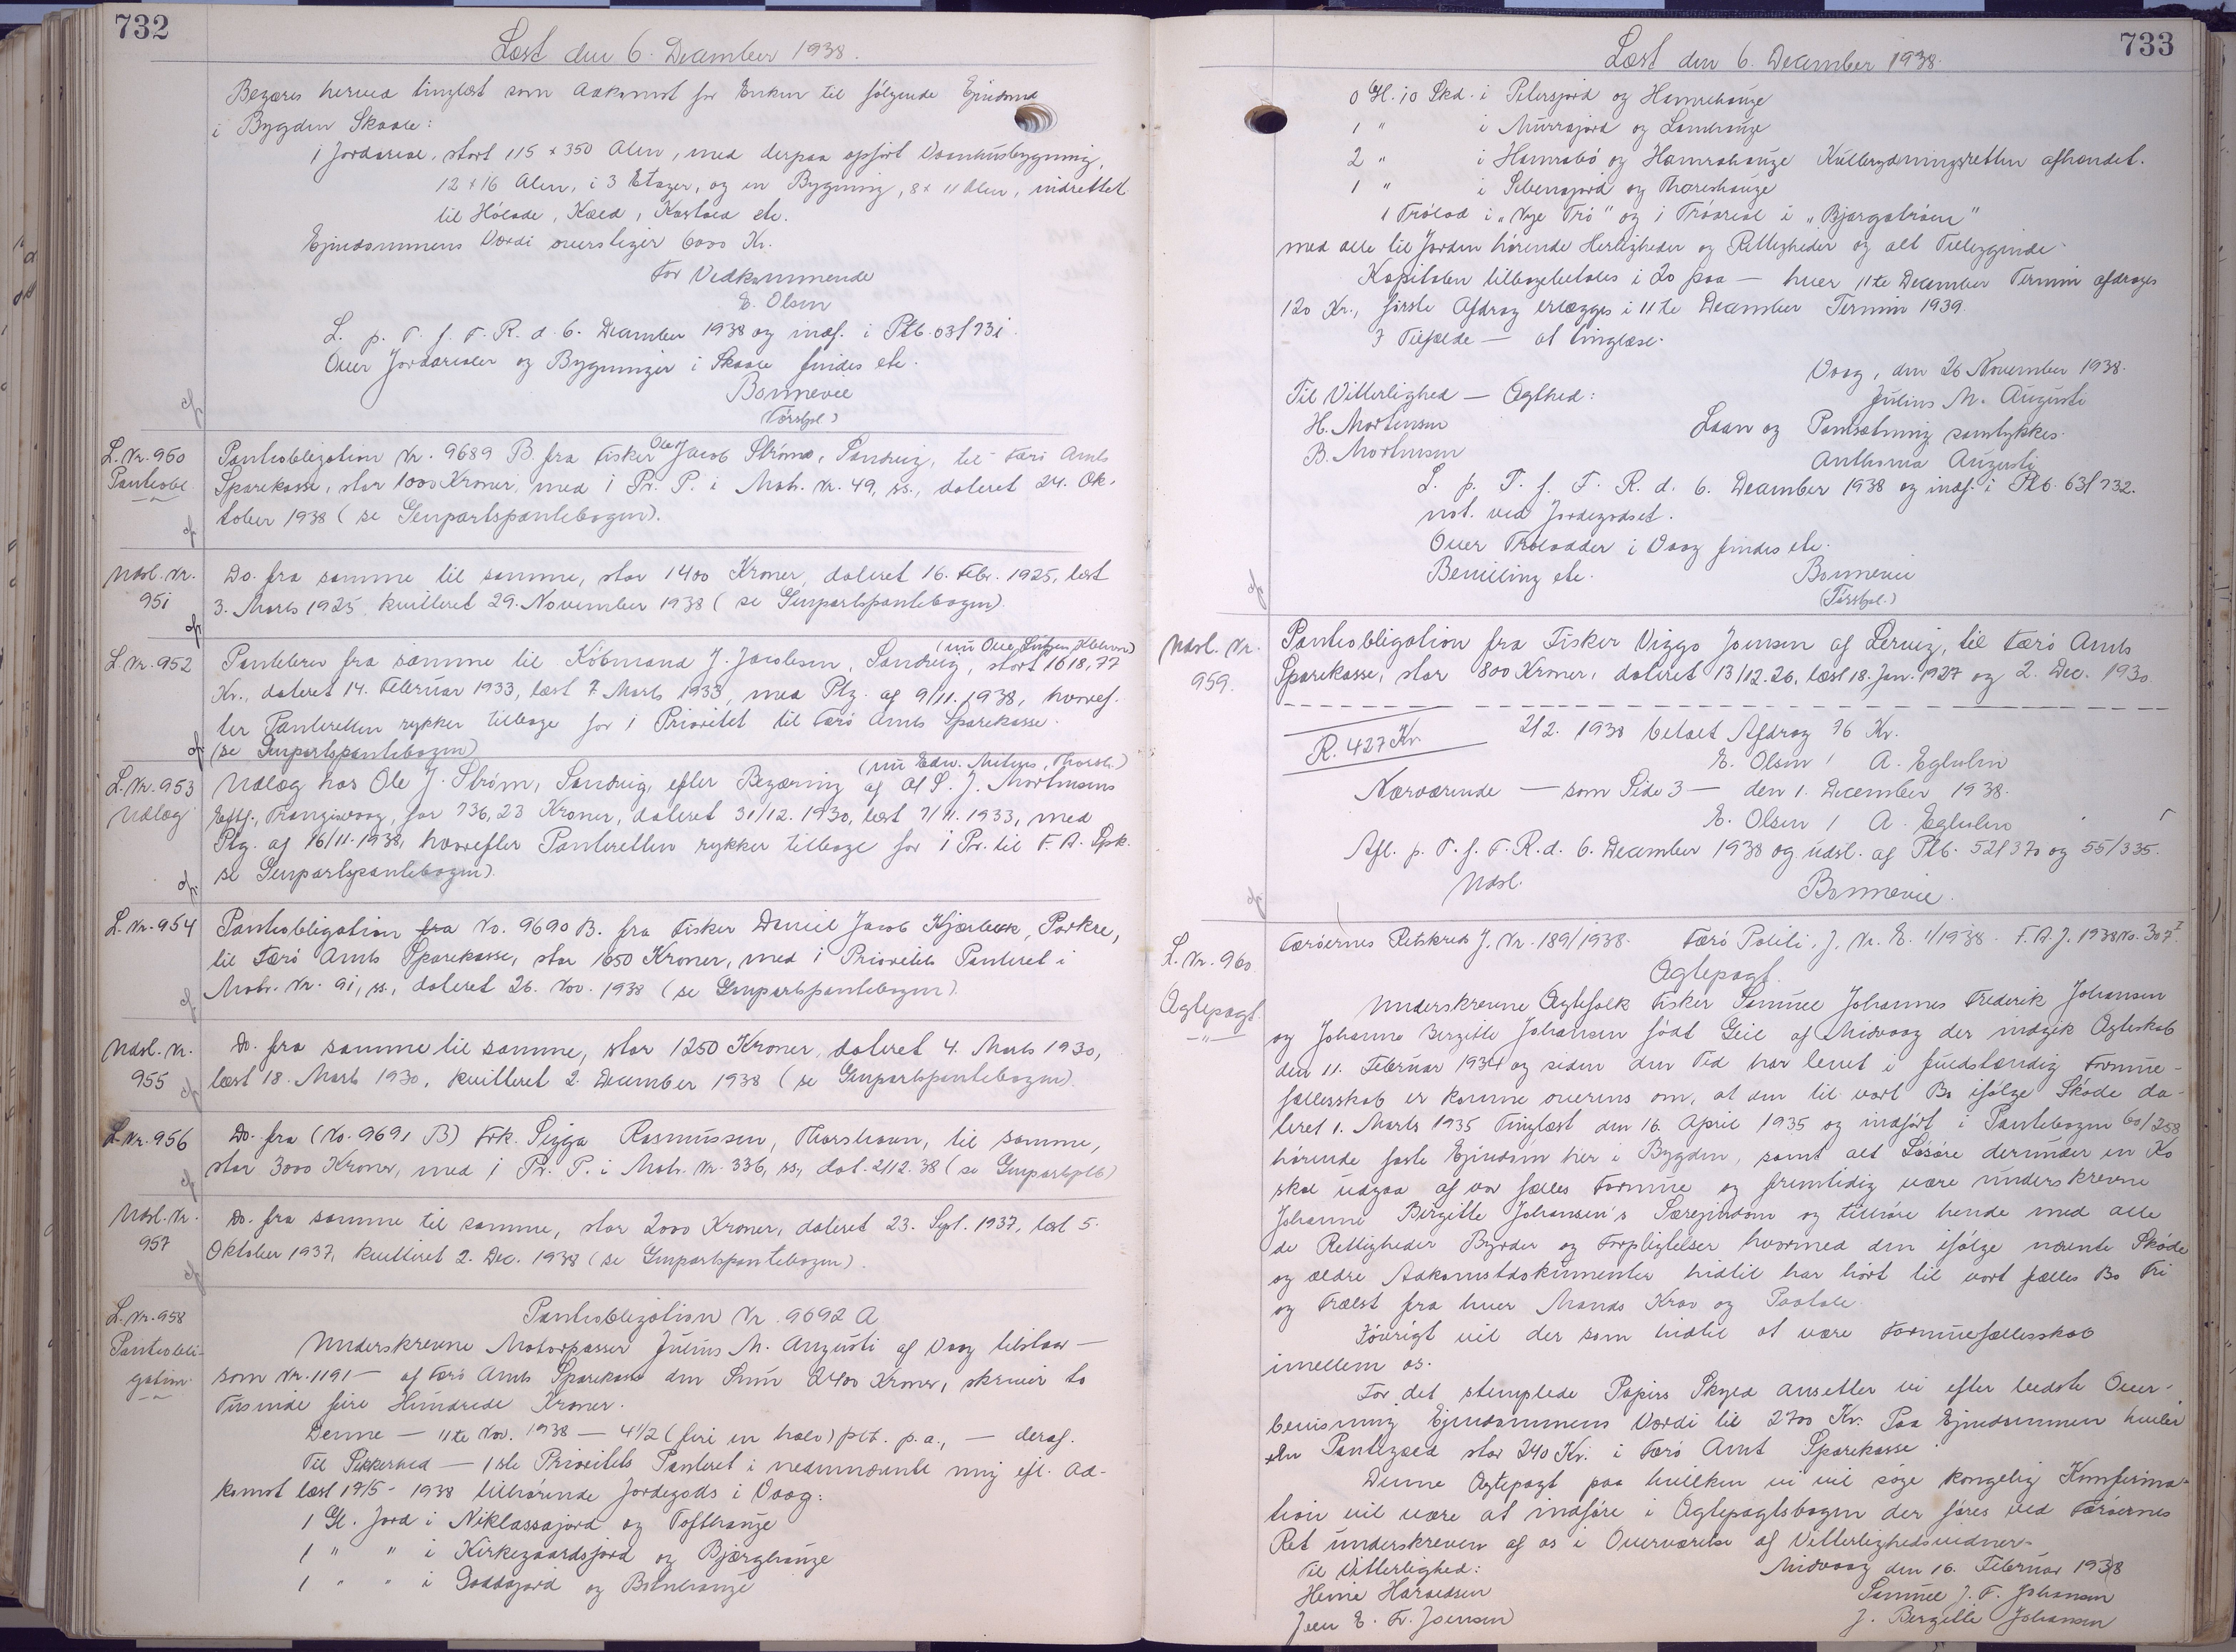 732
Læst den 6. December 1938.
Begæres herved tinglæst som Adkomst for Enken til følgende Ejendom
i Bygden Skaale:
1 Jordareal, stort 115 x 350 Alen, med derpaa opført Vaanhusbygning,
12 x 16 Alen, i 3 Etager, og en Bygning, 8 x 11 Alen, indrettet
til Hølade, Kæld, Kostald etc.
Ejendommens Værdi overstiger 6000 Kr.
For Vedkommende
E. Olsen
L. p. T. f. F. R. d. 6. December 1938 og indf. i Ptb. 63/731.
Over Jordarealer og Bygninger i Skaale findes etc.
Bonnevie
L. Nr. 950
Panteobl.
Panteobligation Nr. 9689 B. fra Fisker Ole Jacob Strøm, Sandvig, til Færø Amts
Sparekasse, stor 1000 Kroner, med 1 Pr. P. i Matr. Nr. 49, ss., dateret 24. Ok-
tober 1938 (se Genpartspantebogen).
Udsl. Nr.
951
Do. fra samme til samme, stor 1400 Kroner, dateret 16. Febr. 1925, læst
3. Marts 1925 kvitteret 29. November 1938 (se Genpartspantebogen)
L. Nr. 952
Pantebrev fra samme til Købmand J. Jacobsen, Sandvig, stort 1618,77
Kr., dateret 14. Februar 1933, læst 7 Marts 1933, med Ptg. af 9/11. 1938, hvoref-
ter Panteretten rykker tilbage for 1 Prioritet til Færø Amts Sparekasse.
(se Genpartspantebogen)
L. Nr. 953
Udlæg
Udlæg hos Ole J. Strøm, Sandvig, efter Begæring af S. J. Mortensens
Eftf., Trangisvaag, for 736,23 Kroner, dateret 31/12. 1930, læst 7/11. 1933, med
Ptg. af 16/11. 1938, hvorefter Panteretten rykker tilbage for 1 Pr. til F. A. Spk.
se Genpartspantebogen).
L. Nr. 954
Panteobligation fra No. 9690 B. fra Fisker Daniel Jacob Kjærbæk, Porkere,
til Færø Amts Sparekasse, stor 1650 Kroner, med 1 Prioritets Panteret i
Matr. Nr. 91, ss., dateret 26. Nov. 1938 (se Genpartspantebogen).
Udsl. Nr.
955
Do. fra samme til samme, stor 1250 Kroner, dateret 4. Marts 1930,
læst 18. Marts 1930, kvitteret 2. December 1938 (se Genpartspantebogen).
L. Nr. 956
Do. fra (No. 9691 B) Frk. Sigga Rasmussen, Thorshavn, til samme,
stor 3000 Kroner, med 1 Pr. P. i Matr. Nr. 336, ss., dat. 2/12. 38 (se Genpartsptb)
Udsl. Nr.
957
Do. fra samme til samme, stor 2000 Kroner, dateret 23. Sept. 1937, læst 5.
Oktober 1937, kvitteret 2. Dec. 1938 (se Genpartspantebogen).
L. Nr. 958
Panteobli-
gation
Panteobligation Nr. 9692 A
Underskrevne Motorpasser Julius M. Augusti af Vaag tilstaar —
som Nr. 1191 — af Færø Amts Sparekasse den Sum 2400 Kroner, skriver to
Tusinde fire Hundrede Kroner.
Denne — 11te Nov. 1938 — 4 1/2 (fire en halv) pCt. p. a., — deraf.
Til Sikkerhed — 1ste Prioritets Panteret i nedennævnte mig efl. Ad-
komst læst 19/5 - 1938 tilhørende Jordegods i Vaag:
1 Gl. Jord i Niklassajord og Tofthauge
1 " " i Kirkegaardsjord og Bjærghauge
1 " " i Goddajord og
733
Læst den 6. December 1938.
0 Gl. 10 Skd. i Petersjord og Hamrehauge
1 " i Murrajord og Lambhauge
2 " i Hamrabø og Hamrahauge Kulbrydningsretten afhændet.
1 " i og Thoreshauge
1 Trølod i "Nye Trø" og 1 Trøareal i "Bjargatrøen"
med alle til Jorden hørende Herligheder og Rettigheder og alt Tilliggende
Kapitalen tilbagebetales i 20 paa — hver 11te December Termin afdrages
120 Kr., første Afdrag erlægges i 11te December Termin 1939.
I Tilfælde — at tinglæse.
Vaag, den 26 November 1938.
Til Vitterlighed — Ægthed:
Julius M. Augusti
H. Mortensen
Laan og Pantsætning samtykkes.
B. Mortensen
Anthonia Augusti
L. p. T. f. F. R. d. 6. December 1938 og indf. i Ptb. 63/732.
not. ved Jordegodset.
Over Trølodder i Vaag findes etc.
Bevilling etc.
Bonnevie
Udsl. Nr.
959.
Panteobligation fra Fisker Viggo Joensen af Lervig, til Færø Amts
Sparekasse, stor 800 Kroner, dateret 13/12. 26, læst 18. Jan. 1927 og 2. Dec. 1930
R. 427 Kr.
2/2. 1938 betalt Afdrag 76 Kr.
E. Olsen / A. Egholm
Nærværende — som Side 3 — den 1. December 1938.
E. Olsen / A. Egholm
Afl. p. T. f. F. R. d. 6. December 1938 og udsl. af Ptb. 52/370 og 55/335.
Udsl.
Bonnevie.
L. Nr. 960
Ægtepagt.
Færøernes Retskreds J. Nr. 189/1938. Færø Politi, J. Nr. E. 1/1938. F. A. J. 1938 No. 307 I.
Ægtepagt.
Underskrevne Ægtefolk Fisker Samuel Johannes Frederik Johansen
og Johanne Birgitte Johansen født Geil af Midvaag der indgik Ægteskab
den 11. Februar 1934 og siden den Tid har levet i fuldstændig Formue-
fællesskab er komne overens om, at den til vort Bo ifølge Skøde da-
teret 1. Marts 1935 Tinglæst den 16. April 1935 og indført i Pantebogen 60/258
hørende faste Ejendom her i Bygden, samt alt Løsøre derunder en Ko
skal udgaa af vor fælles Formue og fremtidig være underskrevne
Johanne Birgitte Johansen's Særejendom og tilhøre hende med alle
de Rettigheder Byrder og Forpligtelser hvormed den ifølge nævnte Skøde
og ældre Adkomstdokumenter hidtil har hørt til vort fælles Bo Fri
og Frælst fra hver Mands Krav og Paatale.
Iøvrigt vil der som hidtil at være Formuefællesskab
imellem os.
For det stemplede Papirs Skyld ansetter vi efter bedste Over-
bevisning Ejendommens Værdi til 2700 Kr. Paa Ejendommen hviler
en Pantegæld stor 240 Kr. i Færø Amt Sparekasse.
Denne Ægtepagt paa hvilken vi vil søge kongelig Konfirma-
tion vil være at indføre i Ægtepagtsbogen der føres ved Færøernes
Ret underskreven af os i Overværelse af Vitterlighedsvidner.
Til Vitterlighed:
Midvaag den 16. Februar 1938
Heine Haraldsen
Samuel J. F. Johansen
Jens E. Fr. Joensen
J. Birgitte Johansen